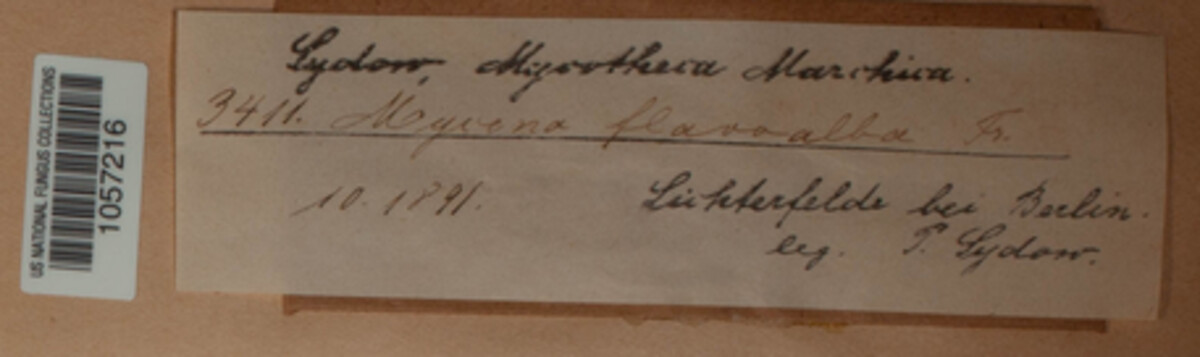 US NATIONAL FUNGUS COLLECTIONS
1057216
Sydow, Mycotheca Marchica.
3411. Mycena flavoalba Fr.
10. 1891.
Lichterfelde bei Berlin.
leg. P. Sydow.